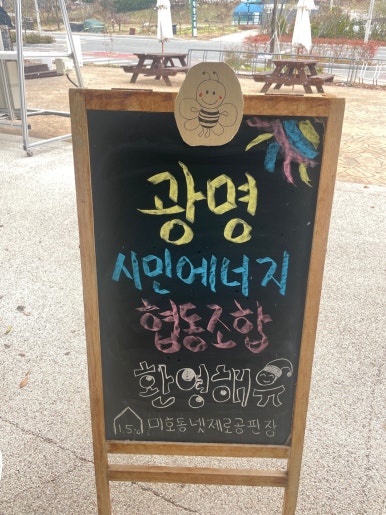 광명
시민에너지
협동조합
환영해유
1.5℃ 미호동넷제로공판장